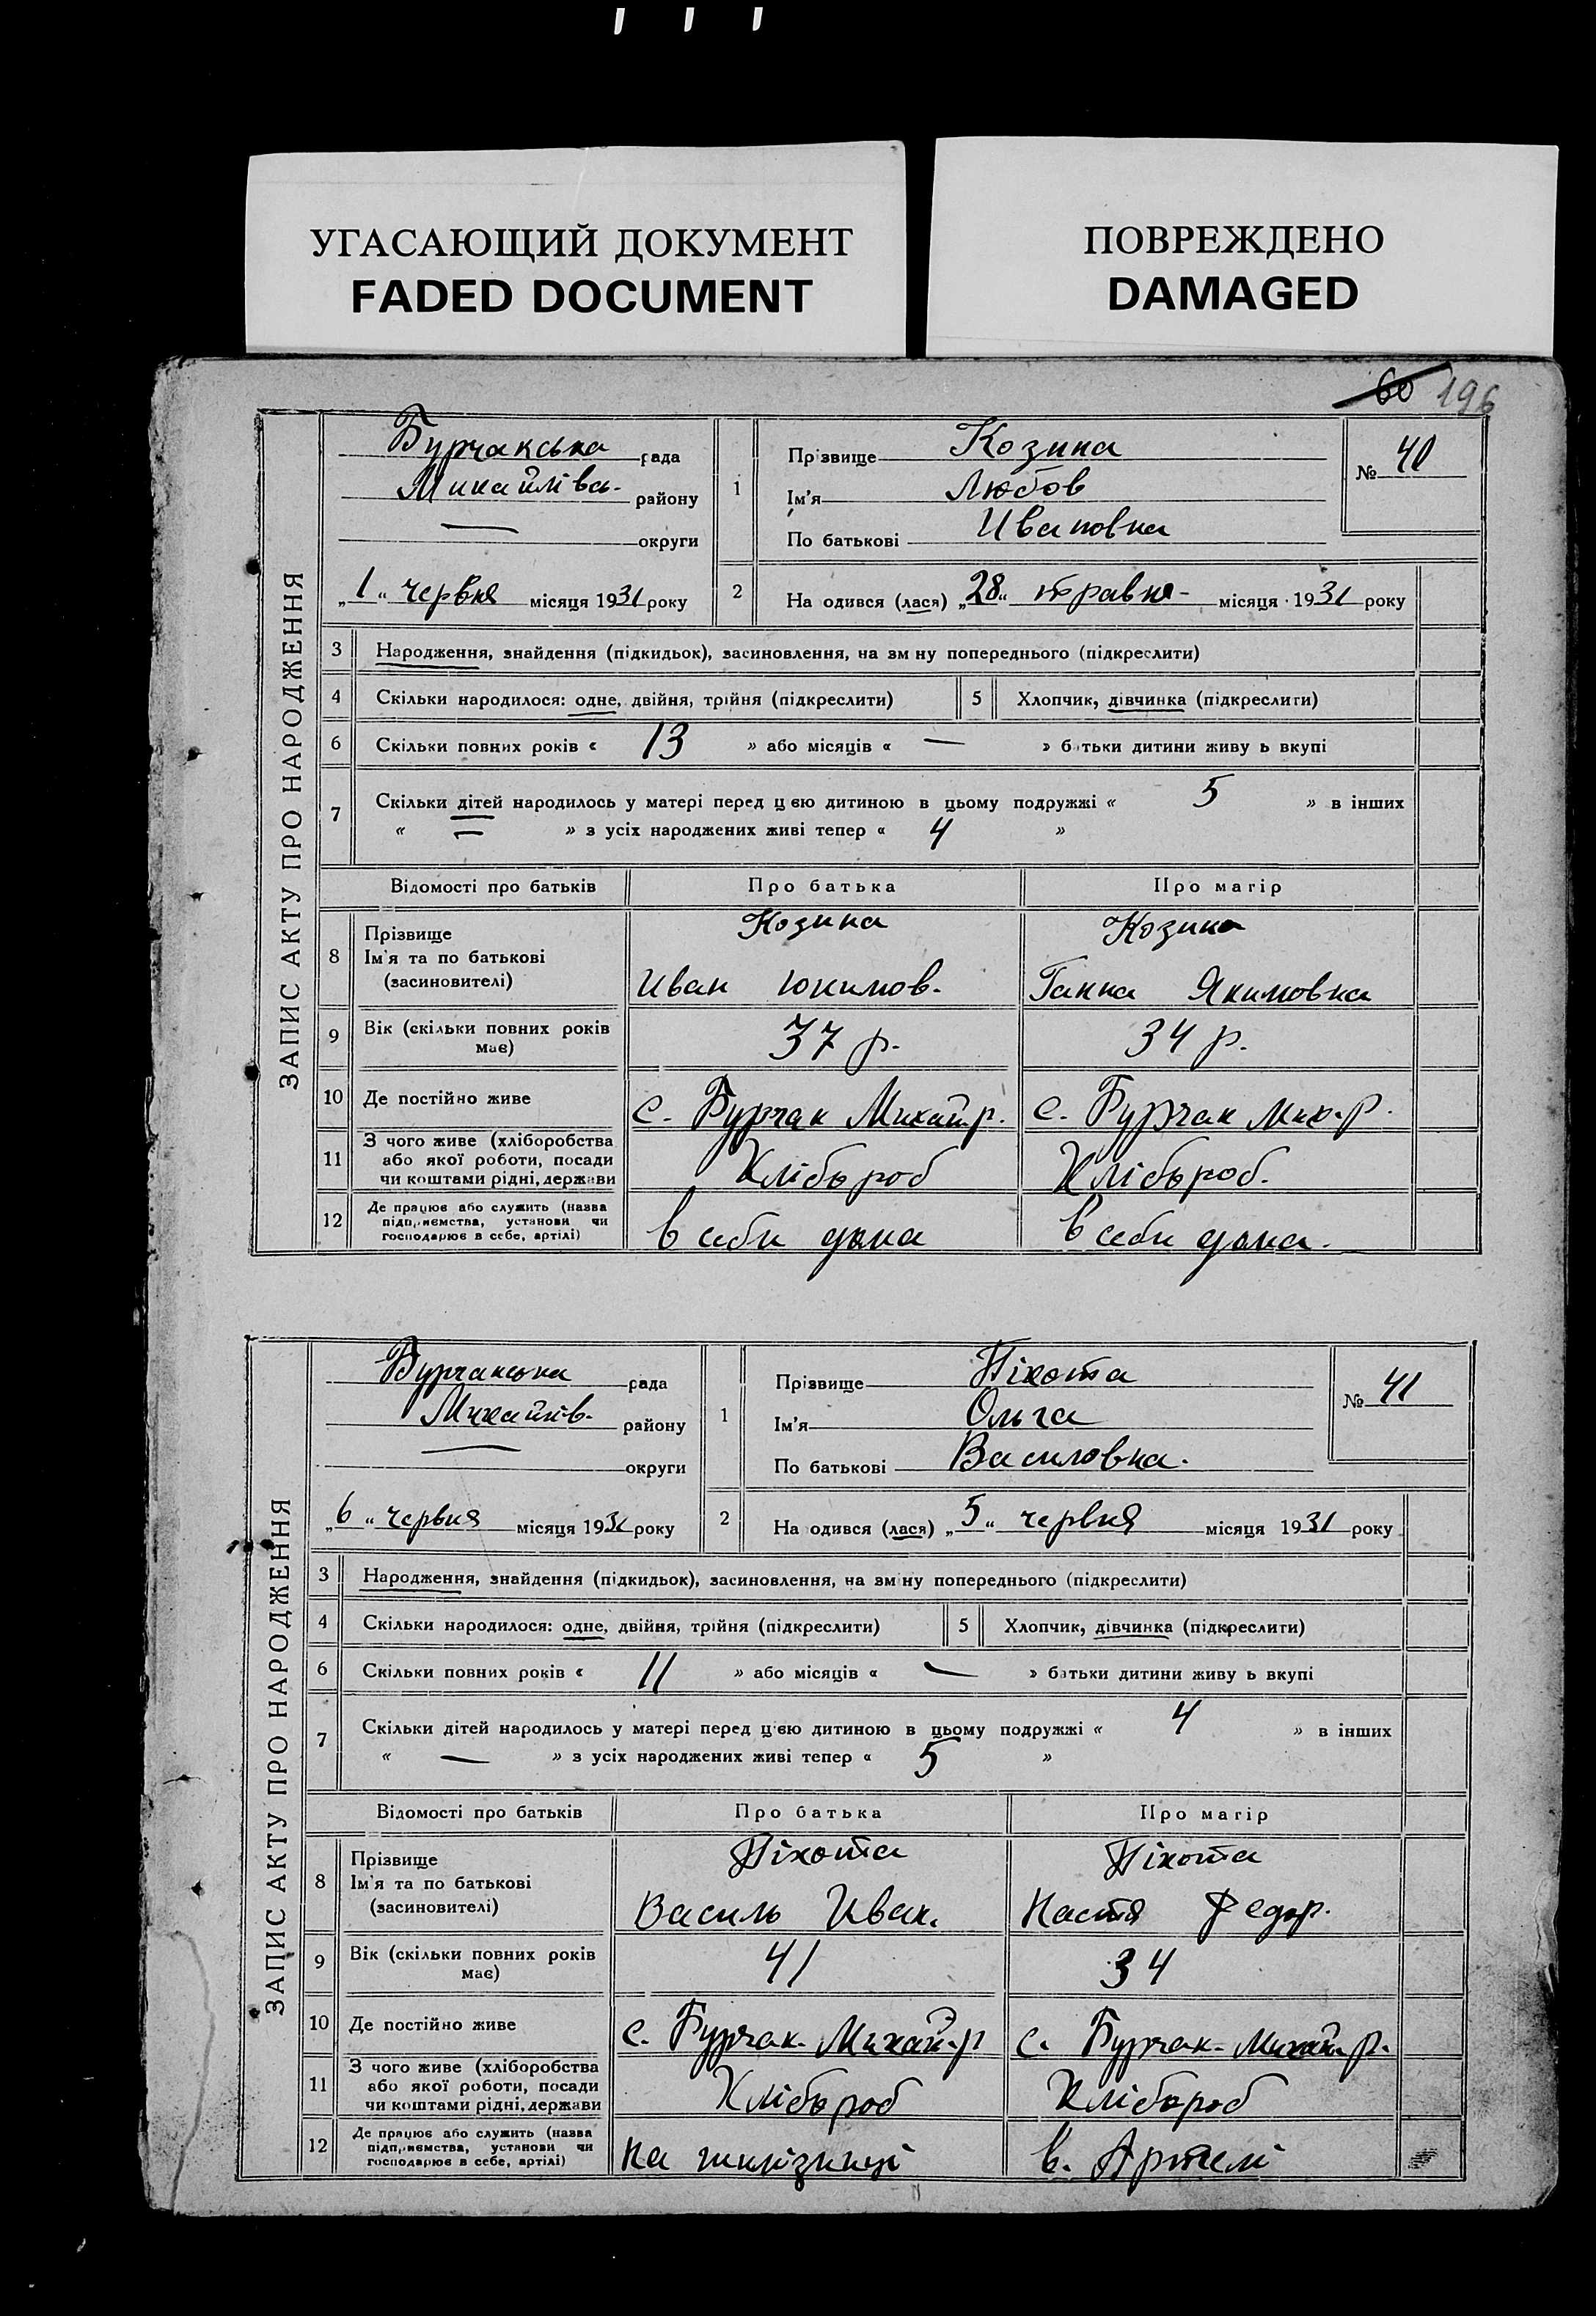 УГАСАЮЩИЙ ДОКУМЕНТ
FADED DOCUMENT
ПОВРЕЖДЕНО
DAMAGED
60 196
ЗАПИС АКТУ ПРО НАРОДЖЕННЯ
Бурчакська рада
Михайлівсь. району
— округи
„1“ червня місяця 1931 року
1
Прізвище Козина
Ім'я Любов
По батькові Ивановна
№ 40
2 На одився (лася) „28“ травня- місяця 1931 року
3 Народження, знайдення (підкидьок), засиновлення, на зм ну попереднього (підкреслити)
4 Скільки народилося: одне, двійня, трійня (підкреслити) 5 Хлопчик, дівчинка (підкреслити)
6 Скільки повних років « 13 » або місяців « — » батьки дитини живу ь вкупі
7 Скільки дітей народилось у матері перед цею дитиною в цьому подружжі « 5 » в інших
« — » з усіх народжених живі тепер « 4 »
Відомості про батьків Про батька Про матір
8 Прізвище
Ім'я та по батькові
(засиновителі)
Козина
Иван Юхимов.
Козина
Ганна Якимовна
9 Вік (скільки повних років має) 37 р. 34 р.
10 Де постійно живе с. Бурчак Михай.р. с. Бурчак Мих.р.
11 З чого живе (хліборобства
або якої роботи, посади
чи коштами рідні, держави
Хлібороб Хлібороб.
12 Де працює або служить (назва
підприємства, установи чи
господарює в себе, артілі)
в себи дома в себи дома.
ЗАПИС АКТУ ПРО НАРОДЖЕННЯ
Бурчакська рада
Михайлів. району
— округи
„6“ червня місяця 1931 року
1
Прізвище Піхота
Ім'я Ольга
По батькові Василовна.
№ 41
2 На одився (лася) „5“ червня місяця 1931 року
3 Народження, знайдення (підкидьок), засиновлення, на зм ну попереднього (підкреслити)
4 Скільки народилося: одне, двійня, трійня (підкреслити) 5 Хлопчик, дівчинка (підкреслити)
6 Скільки повних років « 11 » або місяців « — » батьки дитини живу ь вкупі
7 Скільки дітей народилось у матері перед цею дитиною в цьому подружжі « 4 » в інших
« — » з усіх народжених живі тепер « 5 »
Відомості про батьків Про батька Про матір
8 Прізвище
Ім'я та по батькові
(засиновителі)
Піхота
Василь Иван.
Піхота
Настя Федор.
9 Вік (скільки повних років має) 41 34
10 Де постійно живе с. Бурчак. Михай.р с. Бурчак- Михай.р.
11 З чого живе (хліборобства
або якої роботи, посади
чи коштами рідні, держави
Хлібороб Хлібороб
12 Де працює або служить (назва
підприємства, установи чи
господарює в себе, артілі)
на в. Артелі